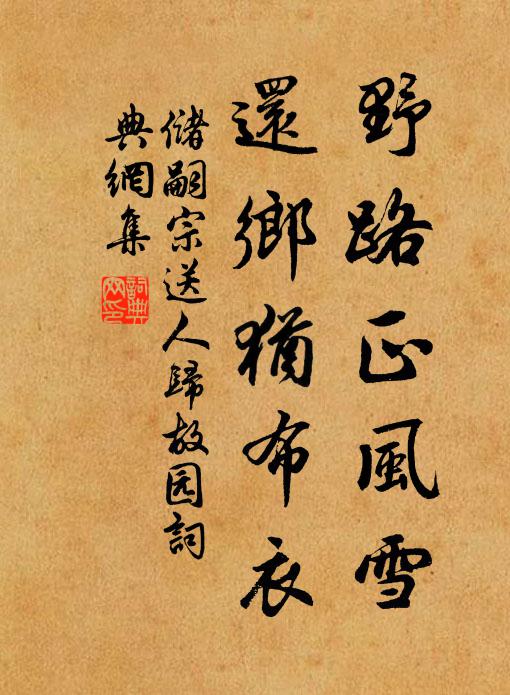 野路正風雪
還鄉猶布衣
儲嗣宗送人歸故园詞
典網集
詞典
网印